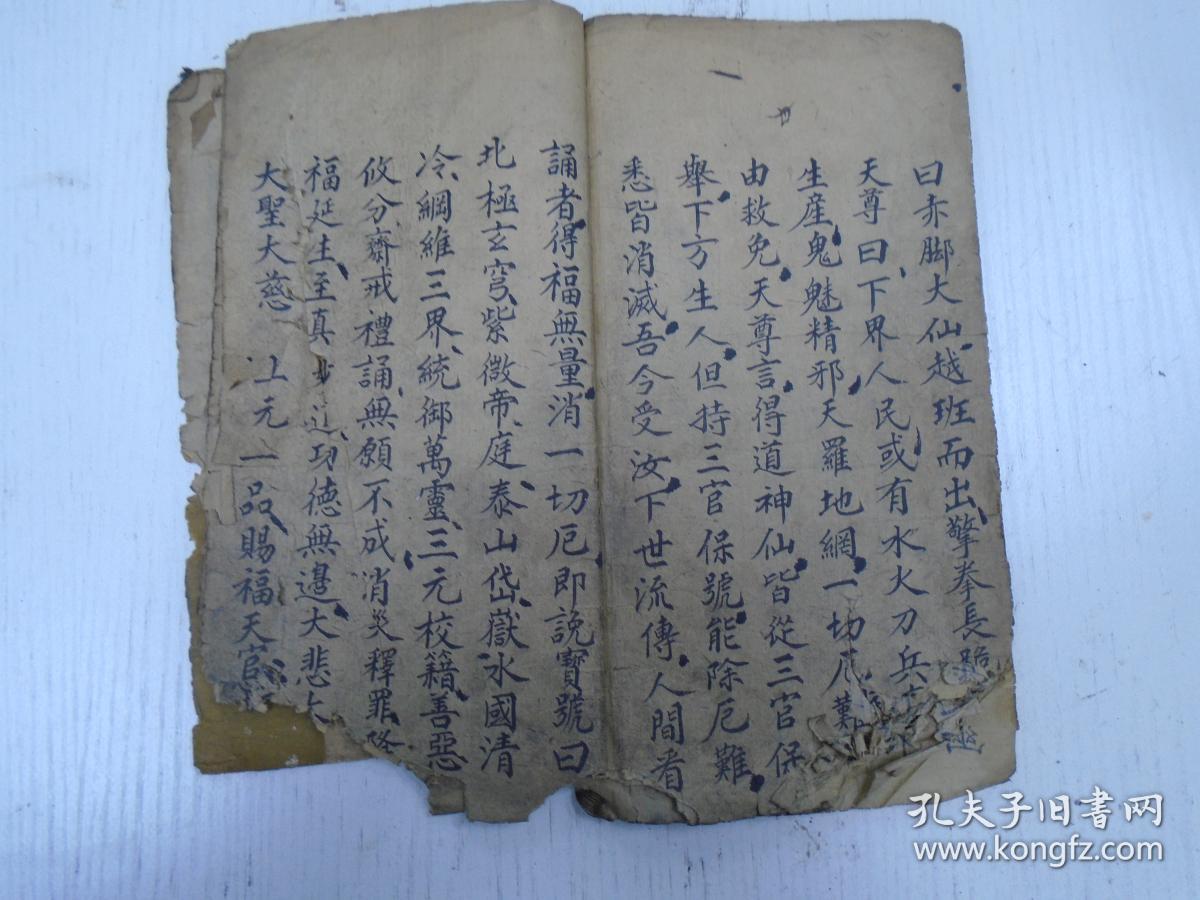 曰赤脚大仙越班而出擎拳長跪
天尊曰下界人民或有水火刀兵
生産鬼魅精邪天羅地網一切厄難
由救免天尊言得道神仙皆從三官保
舉下方生人但持三官保號能除厄難
悉皆消滅吾今受汝下世流傳人間看
誦者得福無量消一切厄即說寶號曰
北極玄穹紫微帝庭泰山岱嶽水國清
冷綱維三界統御萬靈三元校籍善惡
攸分齋戒禮誦無願不成消災釋罪降
福延生至真功德無邊大悲大
大聖大慈上元一品賜福天官
孔夫子旧书网
www.kongfz.com